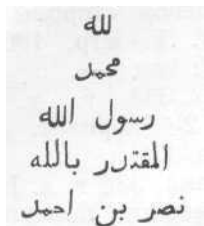 لله
محمد
رسول الله
المقتدر بالله
نصر بن احمد